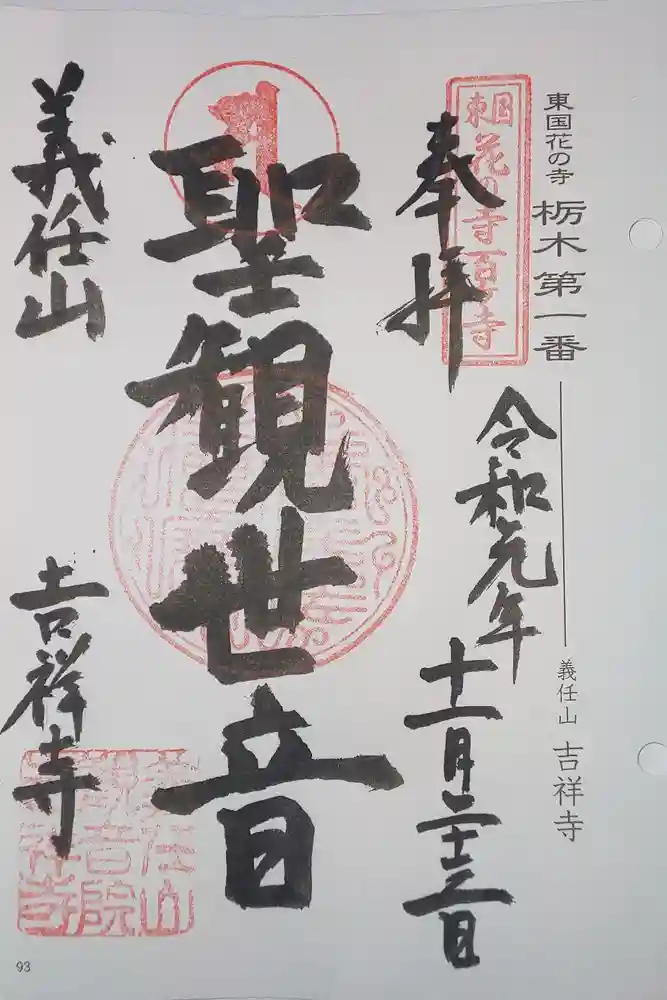 東国花の寺 栃木第一番
義任山 吉祥寺
東国
花の寺百ヶ寺
奉拝
令和元年
十一月二十三日
聖観世音
義任山
吉祥寺
93